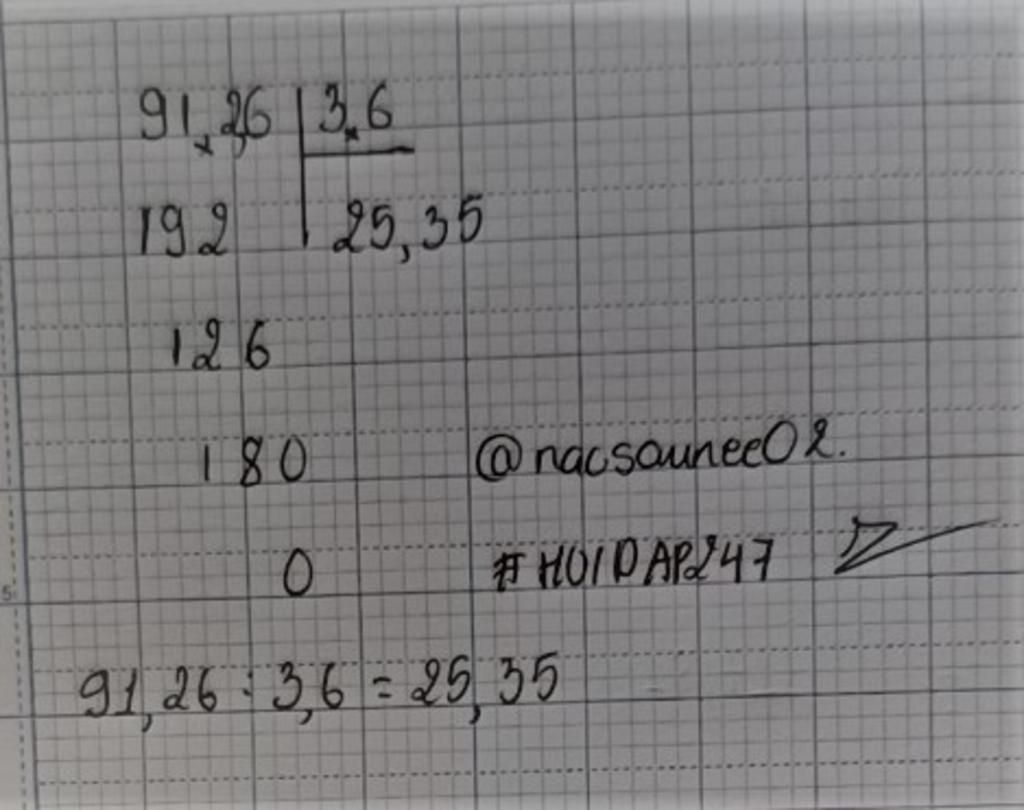 91,26 | 3,6
192 | 25,35
126
180 @nacsaunee02.
0 #HOIDAP247
91,26 : 3,6 = 25,35